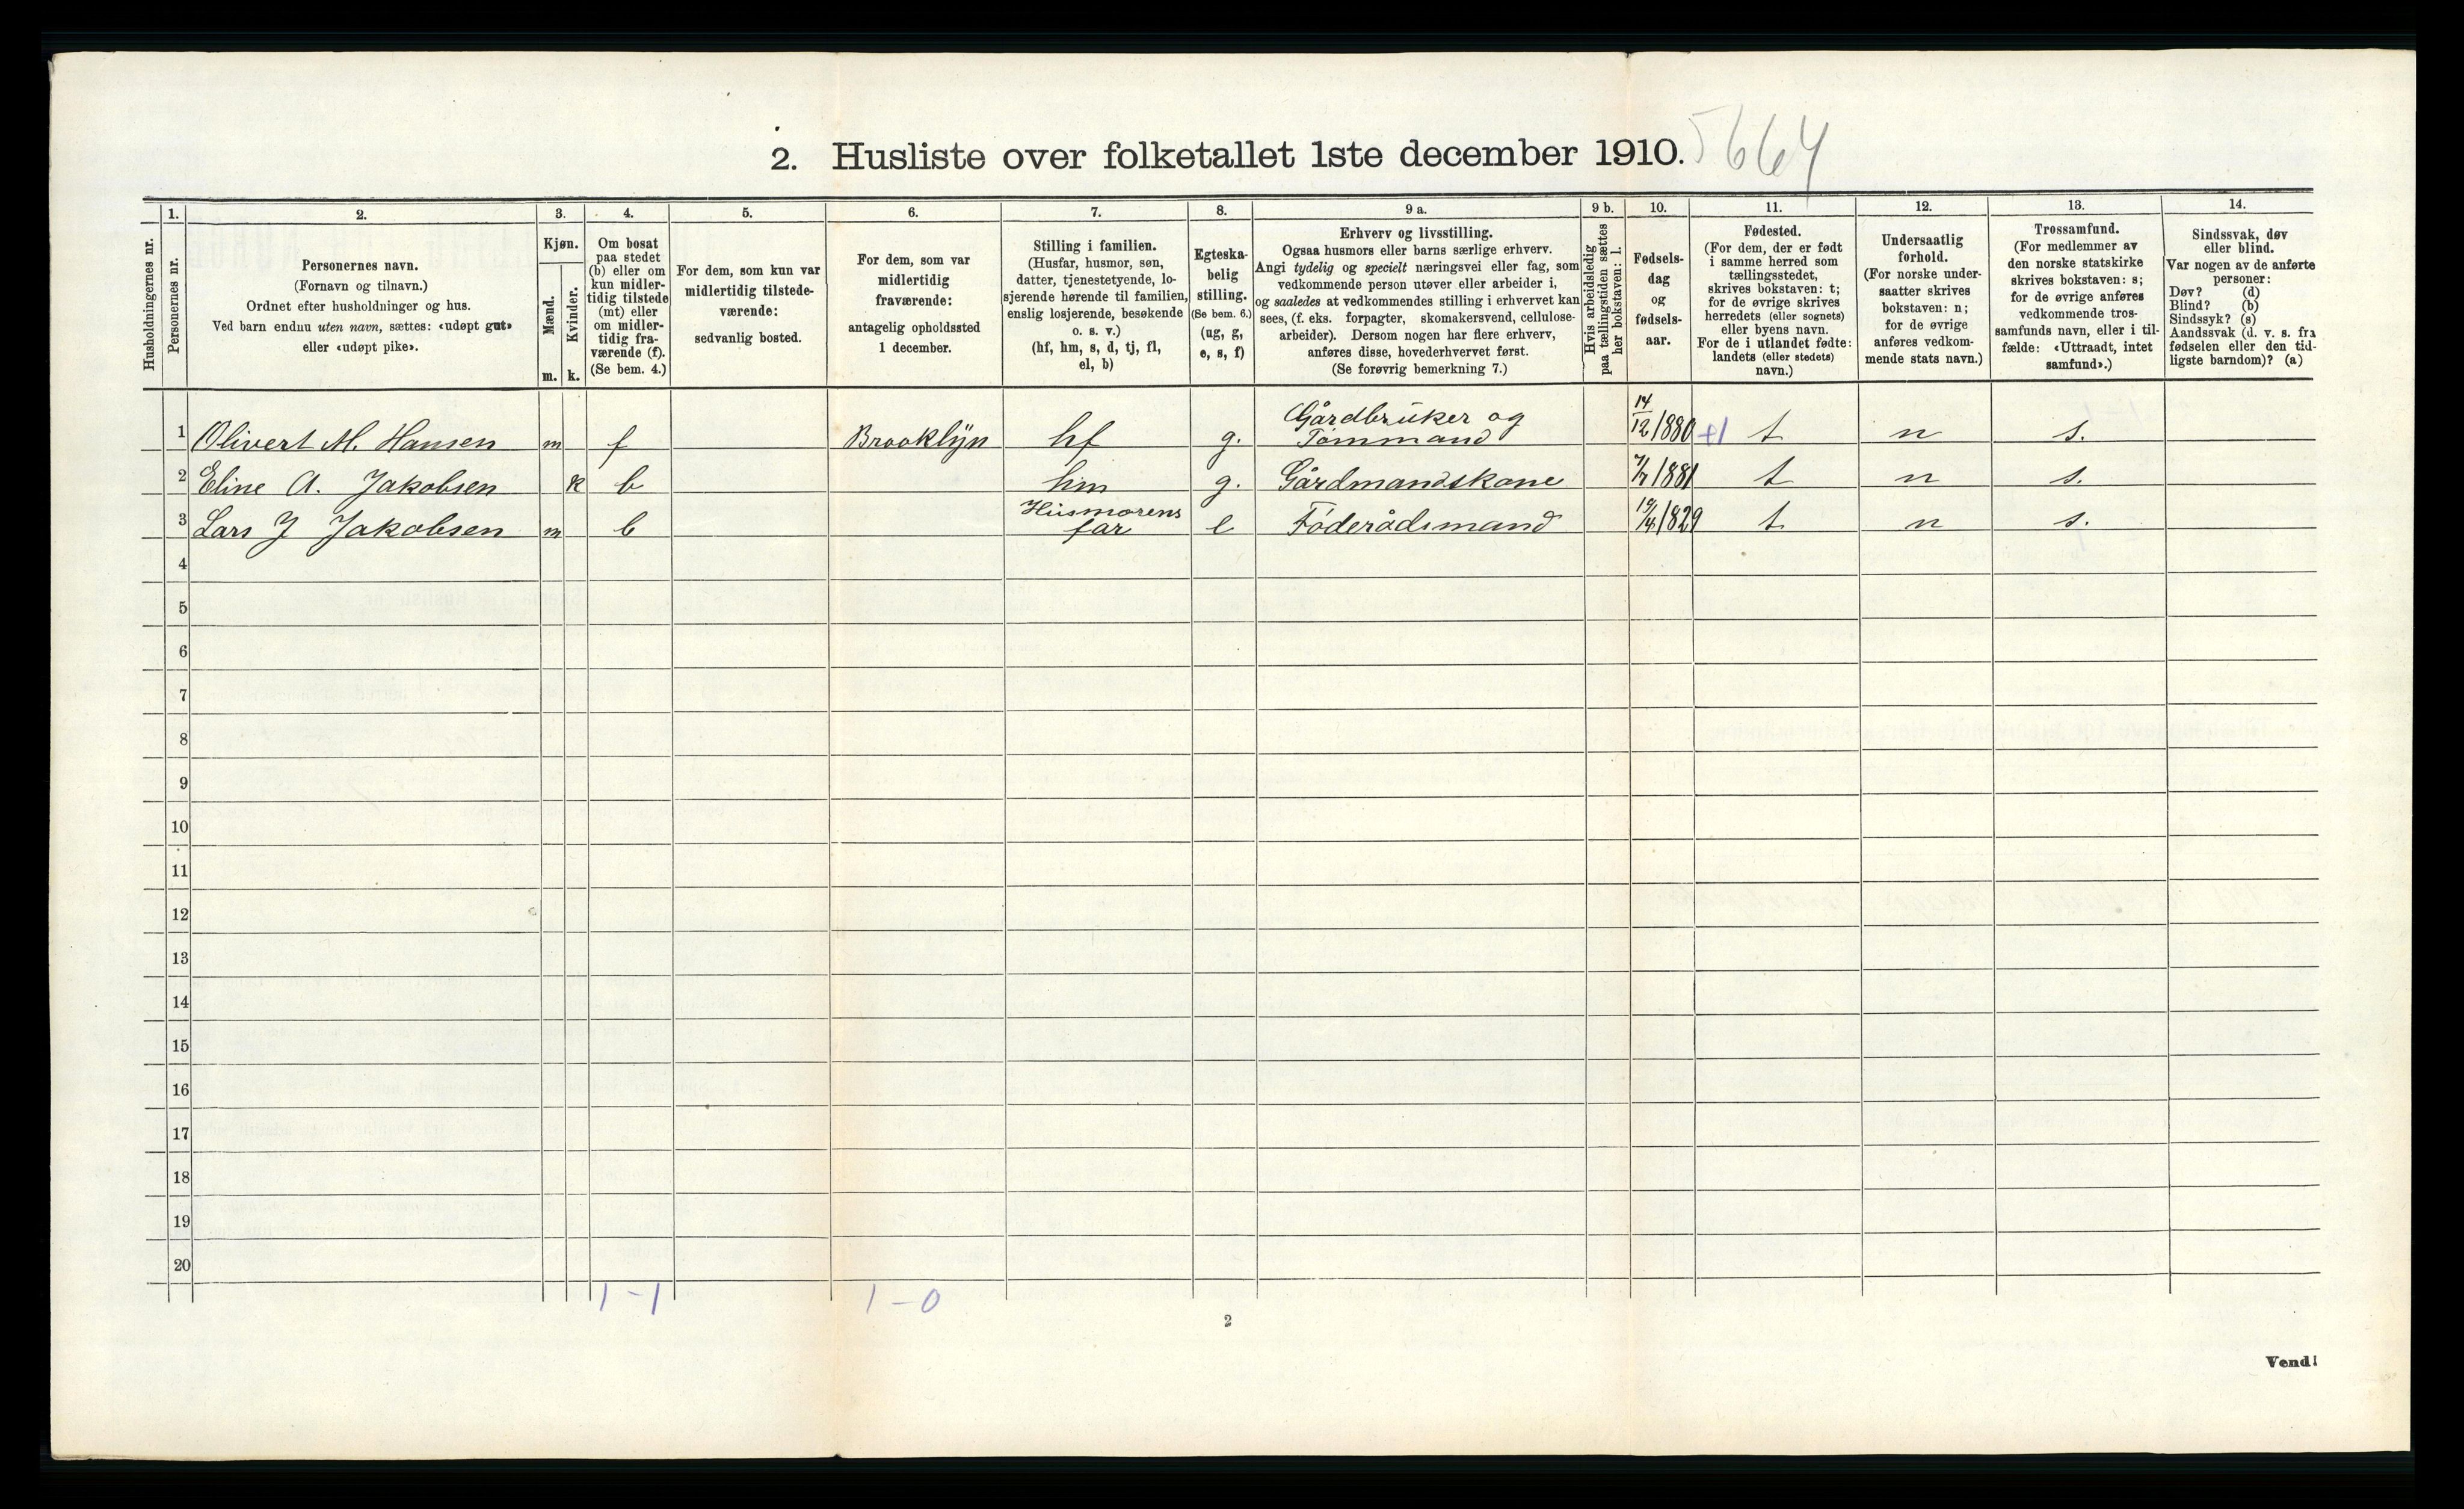 2. Husliste over folketallet 1ste december 1910. 5664
1. 2. 3. 4. 5. 6. 7. 8. 9 a. 9 b. 10. 11. 12. 13. 14.
Husholdningernes nr.
Personernes nr.
Personernes navn.
(Fornavn og tilnavn.)
Ordnet efter husholdninger og hus.
Ved barn endnu uten navn, sættes: «udøpt gut»
eller «udøpt pike».
Kjøn.
Mænd.
Kvinder.
m. k.
Om bosat
paa stedet
(b) eller om
kun midler-
tidig tilstede
(mt) eller
om midler-
tidig fra-
værende (f).
(Se bem. 4.)
For dem, som kun var
midlertidig tilstede-
værende:
sedvanlig bosted.
For dem, som var
midlertidig
fraværende:
antagelig opholdssted
1 december.
Stilling i familien.
(Husfar, husmor, søn,
datter, tjenestetyende, lo-
sjerende hørende til familien,
enslig losjerende, besøkende
o. s. v.)
(hf, hm, s, d, tj, fl,
el, b)
Egteska-
belig
stilling.
(Se bem. 6.)
(ug, g,
e, s, f)
Erhverv og livsstilling.
Ogsaa husmors eller barns særlige erhverv.
Angi tydelig og specielt næringsvei eller fag, som
vedkommende person utøver eller arbeider i,
og saaledes at vedkommendes stilling i erhvervet kan
sees, (f. eks. forpagter, skomakersvend, cellulose-
arbeider). Dersom nogen har flere erhverv,
anføres disse, hovederhvervet først.
(Se forøvrig bemerkning 7.)
Hvis arbeidsledig
paa tællingstiden sættes
her bokstaven: l.
Fødsels-
dag
og
fødsels-
aar.
Fødested.
(For dem, der er født
i samme herred som
tællingsstedet,
skrives bokstaven: t;
for de øvrige skrives
herredets (eller sognets)
eller byens navn.
For de i utlandet fødte:
landets (eller stedets)
navn.)
Undersaatlig
forhold.
(For norske under-
saatter skrives
bokstaven: n;
for de øvrige
anføres vedkom-
mende stats navn.)
Trossamfund.
(For medlemmer av
den norske statskirke
skrives bokstaven: s;
for de øvrige anføres
vedkommende tros-
samfunds navn, eller i til-
fælde: «Uttraadt, intet
samfund».)
Sindssvak, døv
eller blind.
Var nogen av de anførte
personer:
Døv? (d)
Blind? (b)
Sindssyk? (s)
Aandssvak (d. v. s. fra
fødselen eller den tid-
ligste barndom)? (a)
1 Olivert M. Hansen m f Brooklyn hf g. Gårdbruker og Tømmand 14/12 1880 +1 t n s.
2 Eline A. Jakobsen k b hm g. Gårdmandskone 1881 t n s.
3 Lars J Jakobsen m b Husmorens far e Føderådsmand 1829 t n s.
4
5
6
7
8
9
10
11
12
13
14
15
16
17
18
19
20
1 - 1 1 - 0
2
Vend!